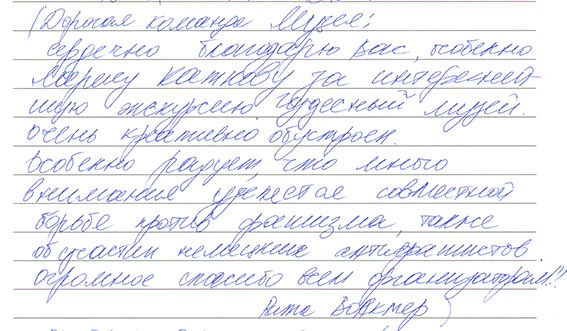 (Дорогая команда Музея!
сердечно благодарю Вас, особенно
Марину Каткову за интересней-
шую экскурсию. Чудесный музей.
очень креативно обустроен.
Особенно радует, что много
внимания уделяется совместной
борьбе против фашизма, также
об участии немецких антифашистов.
огромное спасибо всем организаторам!!!
Рита